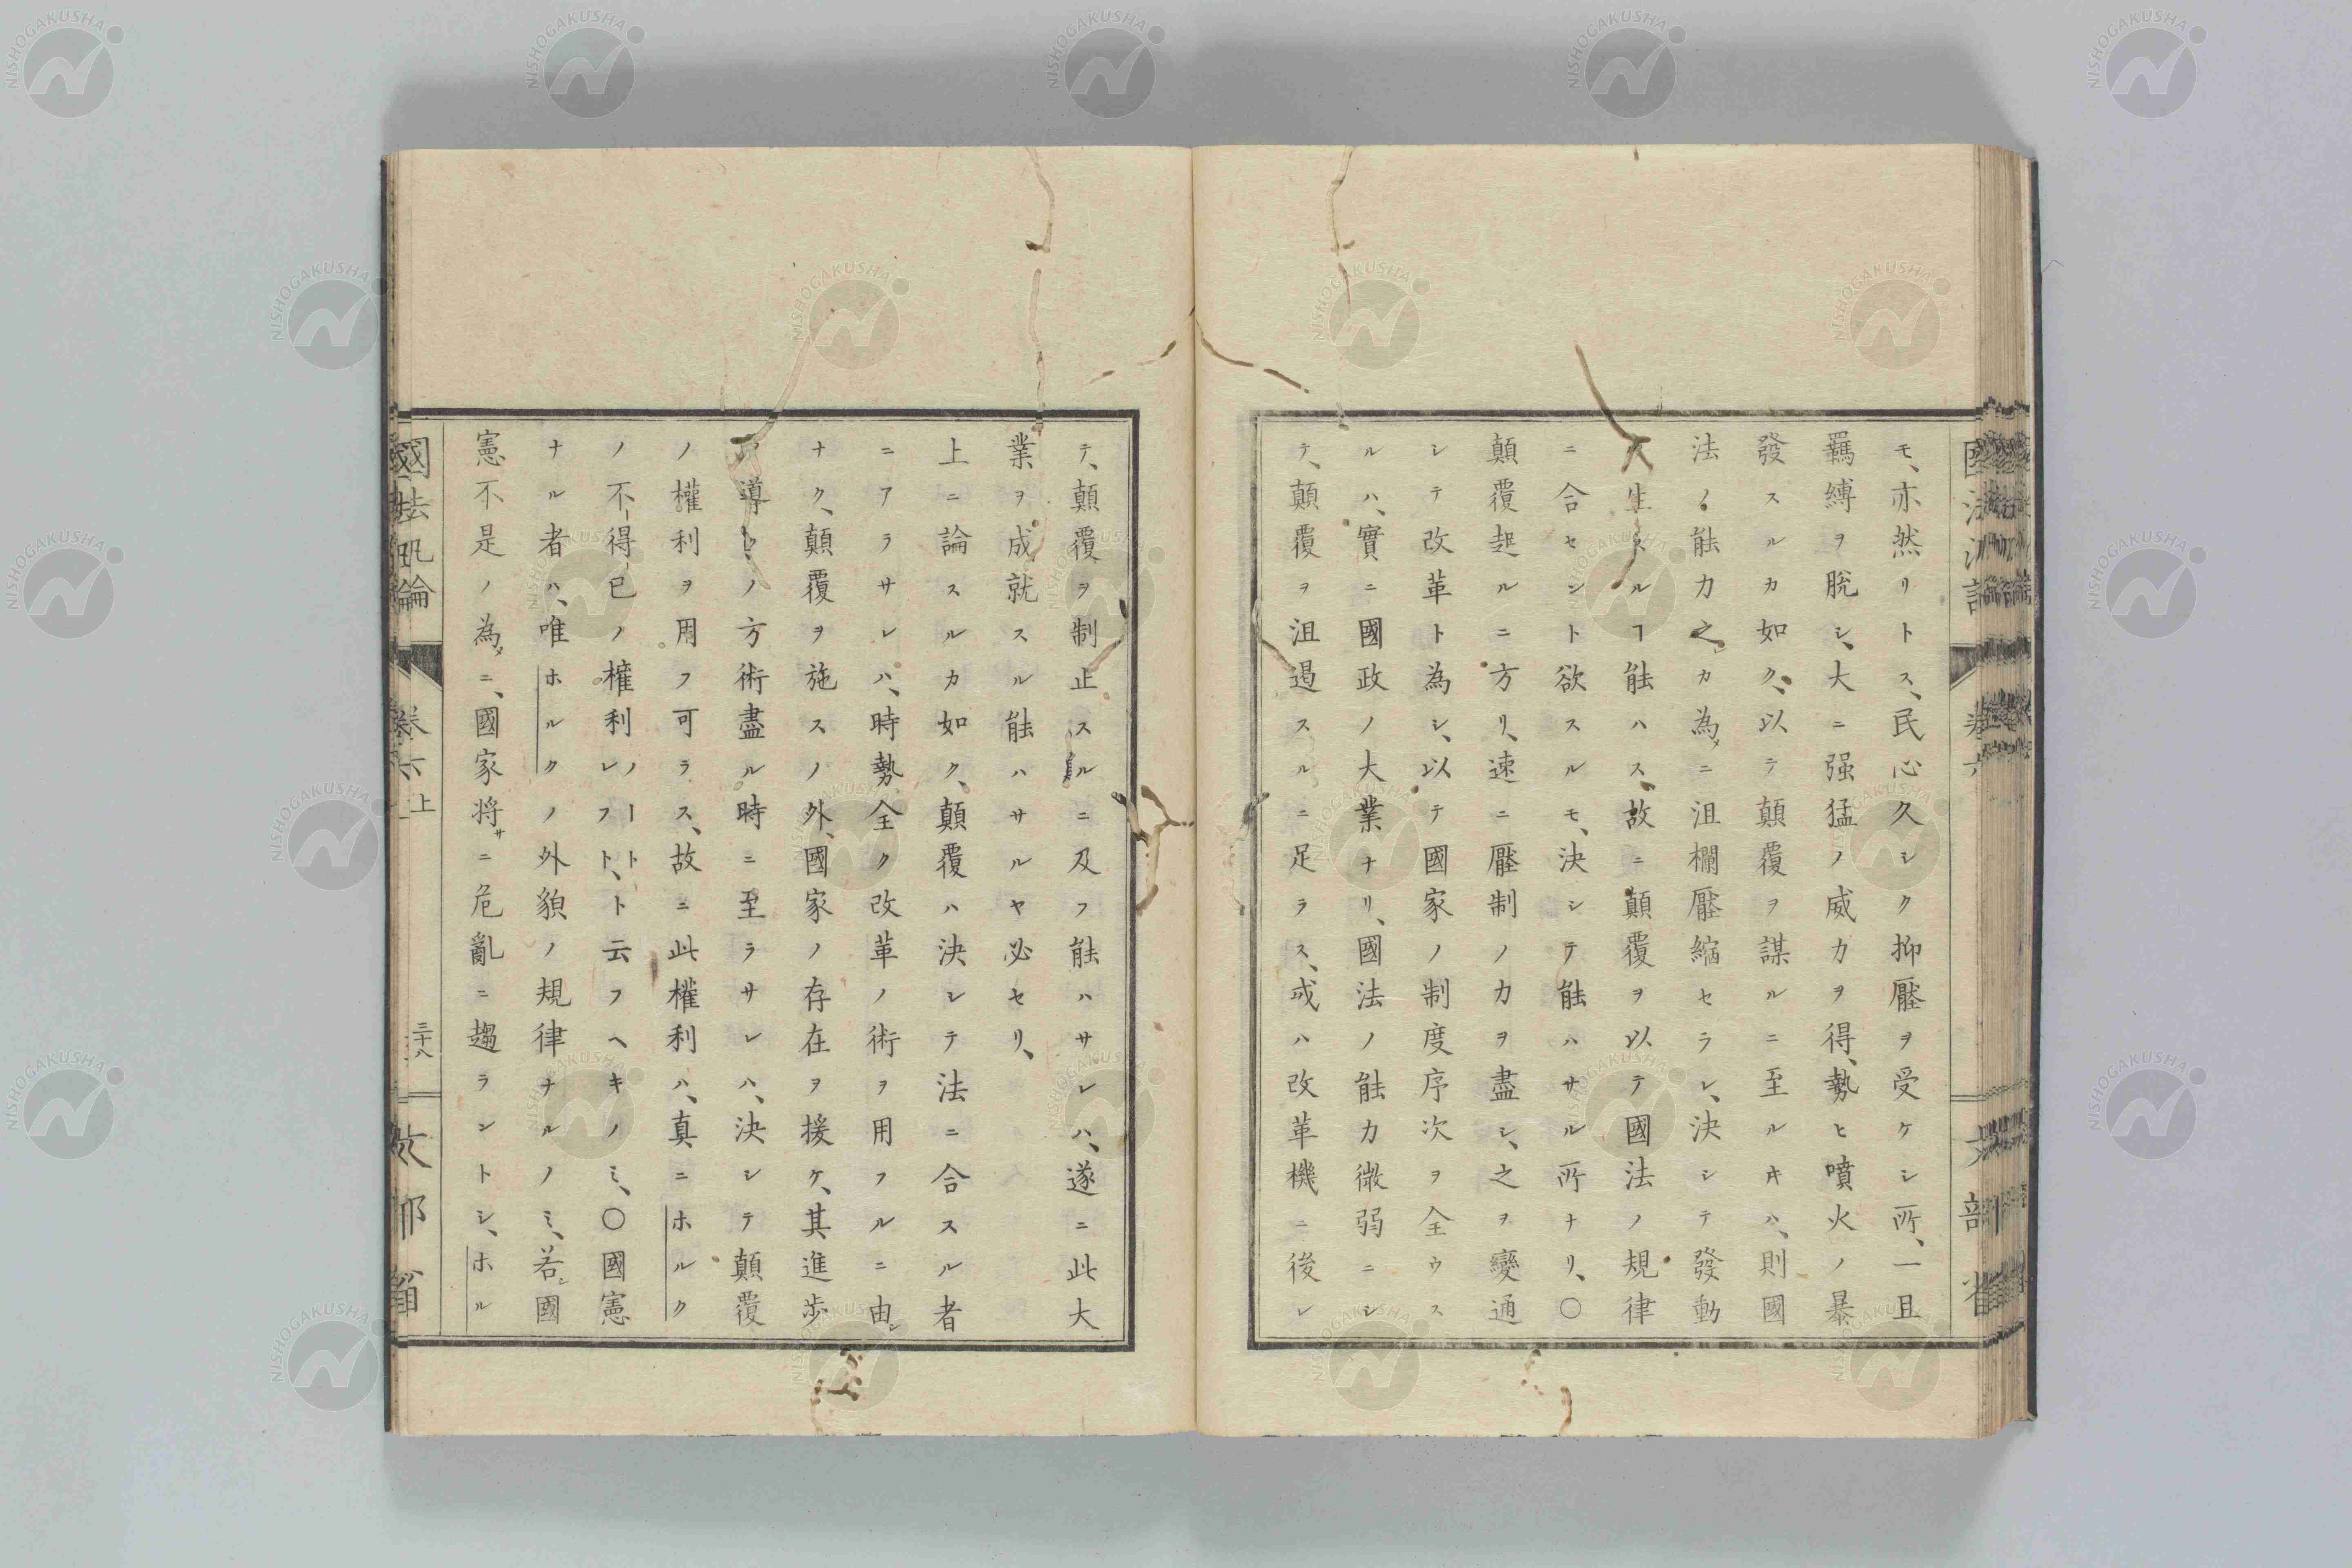 モ、亦然リトス、民心久シク抑壓ヲ受ケシ所、一旦
羈縛ヲ脫シ、大ニ强猛ノ威力ヲ得、勢ヒ噴火ノ暴
發スルカ如ク、以テ顛覆ヲ謀ルニ至ルキハ、則國
法ノ能力之カ為メニ沮欄壓縮セラレ、決シテ發動
生スルヿ能ハス、故ニ顛覆ヲ以テ國法ノ規律
ニ合セント欲スルモ、決シテ能ハサル所ナリ、〇
顛覆起ルニ方リ、速ニ壓制ノ力ヲ盡シ、之ヲ變通
シテ改革ト為シ、以テ國家ノ制度序次ヲ全ウス
ルハ、實ニ國政ノ大業ナリ、國法ノ能力微弱ニシ
テ、顛覆ヲ沮遏スルニ足ラス、或ハ改革機ニ後レ
テ、顛覆ヲ制止スルニ及フ能ハサレハ、遂ニ此大
業ヲ成就スル能ハサルヤ必セリ、
上ニ論スルカ如ク、顛覆ハ決シテ法ニ合スル者
ニアラサレハ、時勢全ク改革ノ術ヲ用フルニ由シ
ナク、顛覆ヲ施スノ外、國家ノ存在ヲ援ケ、其進步
導クノ方術盡ル時ニ至ラサレハ、決シテ顛覆
ノ權利ヲ用フ可ラス、故ニ此權利ハ、真ニホルク
ノ不得已ノ權利ノートレフト、ト云フヘキノミ、〇國憲
ナル者ハ、唯ホルクノ外貌ノ規律ナルノミ、若シ國
憲不是ノ為メニ、國家将サニ危亂ニ趨ラントシ、ホル
國法汎論 卷六上 三十八 文部省
NISHOGAKUSHA